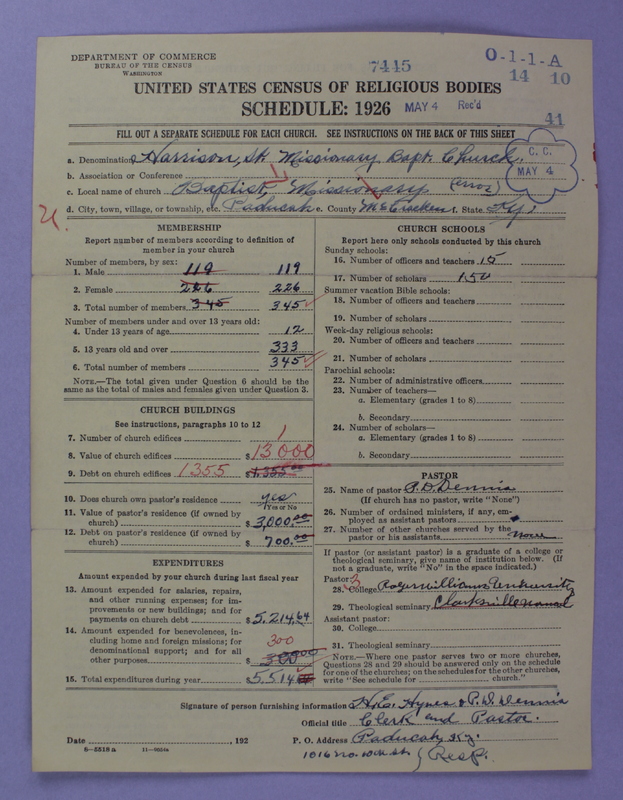 DEPARTMENT OF COMMERCE
BUREAU OF THE CENSUS
WASHINGTON
7445
O-1-1-A
14 10
UNITED STATES CENSUS OF RELIGIOUS BODIES
SCHEDULE: 1926 MAY 4 Rec'd
41
FILL OUT A SEPARATE SCHEDULE FOR EACH CHURCH. SEE INSTRUCTIONS ON THE BACK OF THIS SHEET
C. C.
MAY 4
a. Denomination Harrison St. Missionary Bapt. Church.
b. Association or Conference
c. Local name of church Baptist, Missionary (error)
d. City, town, village, or township, etc. Paducah e. County McCracken f. State Ky.
MEMBERSHIP
Report number of members according to definition of member in your church
Number of members, by sex:
1. Male 119 119
2. Female 226 226
3. Total number of members 345 345
Number of members under and over 13 years old:
4. Under 13 years of age 12
5. 13 years old and over 333
6. Total number of members 345
NOTE.—The total given under Question 6 should be the same as the total of males and females given under Question 3.
CHURCH BUILDINGS
See instructions, paragraphs 10 to 12
7. Number of church edifices 1
8. Value of church edifices $13000
9. Debt on church edifices 1355 $1,355.00
10. Does church own pastor's residence yes
(Yes or No)
11. Value of pastor's residence (if owned by church) $3,000.00
12. Debt on pastor's residence (if owned by church) $700.00
EXPENDITURES
Amount expended by your church during last fiscal year
13. Amount expended for salaries, repairs, and other running expenses; for improvements or new buildings; and for payments on church debt $5,214.64
14. Amount expended for benevolences, including home and foreign missions; for denominational support; and for all other purposes 300 $300.00
15. Total expenditures during year $5,514
CHURCH SCHOOLS
Report here only schools conducted by this church
Sunday schools:
16. Number of officers and teachers 15
17. Number of scholars 150
Summer vacation Bible schools:
18. Number of officers and teachers
19. Number of scholars
Week-day religious schools:
20. Number of officers and teachers
21. Number of scholars
Parochial schools:
22. Number of administrative officers
23. Number of teachers—
a. Elementary (grades 1 to 8)
b. Secondary
24. Number of scholars—
a. Elementary (grades 1 to 8)
b. Secondary
PASTOR
25. Name of pastor P.D. Dennis
(If church has no pastor, write "None")
26. Number of ordained ministers, if any, employed as assistant pastors
27. Number of other churches served by the pastor or his assistants none
If pastor (or assistant pastor) is a graduate of a college or theological seminary, give name of institution below. (If not a graduate, write "No" in the space indicated.)
Pastor: 3
28. College Roger Williams University
29. Theological seminary Clarksville Normal
Assistant pastor:
30. College
31. Theological seminary
NOTE.—Where one pastor serves two or more churches, Questions 28 and 29 should be answered only on the schedule for one of the churches; on the schedules for the other churches, write "See schedule for church."
Signature of person furnishing information H.E. Hynes & P.D. Dennis
Official title Clerk and Pastor.
Date , 192
P. O. Address Paducah, Ky.
6—5518 a
1016 no. 10th st. Resp.